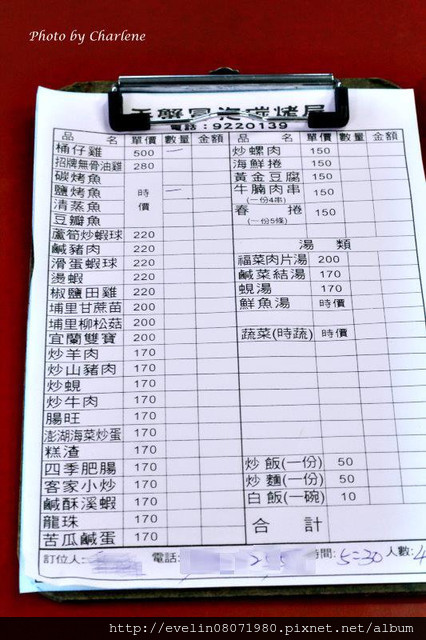 Photo by Charlene
電話：9220139
品 名 單價 數量 金額
桶仔雞 500 一
招牌無骨油雞 280
碳烤魚
鹽烤魚 時 一
清蒸魚 價
豆瓣魚
蘆筍炒蝦球 220
鹹豬肉 220
滑蛋蝦球 220
燙蝦 220
椒鹽田雞 220
埔里甘蔗苗 200
埔里柳松菇 200
宜蘭雙寶 200
炒羊肉 170
炒山豬肉 170
炒蜆 170
炒牛肉 170
腸旺 170
澎湖海菜炒蛋 170
糕渣 170
四季肥腸 170
客家小炒 170
鹹酥溪蝦 170
龍珠 170
苦瓜鹹蛋 170
品 名 單價 數量 金額
炒螺肉 150
海鮮捲 150
黃金豆腐 150
牛腩肉串 150
(一份4串)
春 捲 150
(一份5條)
湯 類
福菜肉片湯 200
鹹菜結湯 170
蜆湯 170
鮮魚湯 時價
蔬菜(時蔬) 時價
炒飯(一份) 50
炒麵(一份) 50
白飯(一碗) 10
合 計
訂位人: 電話: 時間: 5:30 人數: 4
http://evelin08071980.pixnet.net/album